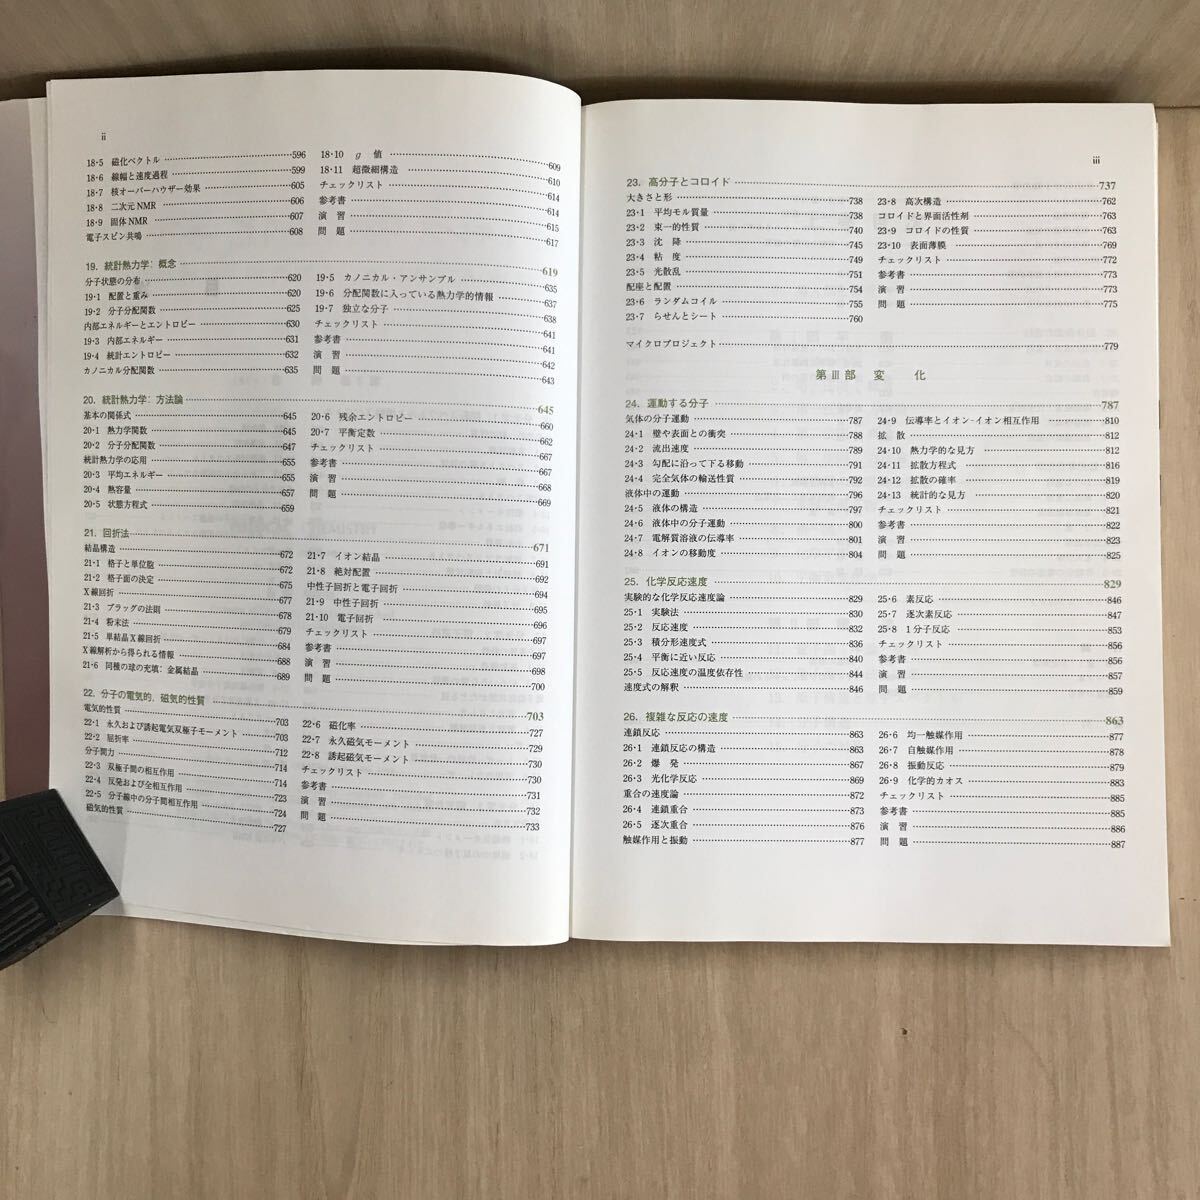 ii
18・5 磁化ベクトル 596
18・6 線幅と速度過程 599
18・7 核オーバーハウザー効果 605
18・8 二次元 NMR 606
18・9 固体 NMR 607
電子スピン共鳴 608
18・10 g 値 609
18・11 超微細構造 610
チェックリスト 614
参考書 614
演習 615
問題 617
19. 統計熱力学: 概念 619
分子状態の分布 620
19・1 配置と重み 620
19・2 分子分配関数 625
内部エネルギーとエントロピー 630
19・3 内部エネルギー 631
19・4 統計エントロピー 632
カノニカル分配関数 635
19・5 カノニカル・アンサンブル 635
19・6 分配関数に入っている熱力学的情報 637
19・7 独立な分子 638
チェックリスト 641
参考書 641
演習 642
問題 643
20. 統計熱力学: 方法論 645
基本の関係式 645
20・1 熱力学関数 645
20・2 分子分配関数 647
統計熱力学の応用 655
20・3 平均エネルギー 655
20・4 熱容量 657
20・5 状態方程式 659
20・6 残余エントロピー 660
20・7 平衡定数 662
チェックリスト 667
参考書 667
演習 668
問題 669
21. 回折法 671
結晶構造 672
21・1 格子と単位胞 672
21・2 格子面の決定 675
X線回折 677
21・3 ブラッグの法則 678
21・4 粉末法 679
21・5 単結晶X線回折 684
X線解析から得られる情報 688
21・6 同種の球の充填: 金属結晶 689
21・7 イオン結晶 691
21・8 絶対配置 692
中性子回折と電子回折 694
21・9 中性子回折 695
21・10 電子回折 696
チェックリスト 697
参考書 697
演習 698
問題 700
22. 分子の電気的, 磁気的性質 703
電気的性質 703
22・1 永久および誘起電気双極子モーメント 703
22・2 屈折率 712
分子間力 714
22・3 双極子間の相互作用 714
22・4 反発および全相互作用 723
22・5 分子線中の分子間相互作用 724
磁気的性質 727
22・6 磁化率 727
22・7 永久磁気モーメント 729
22・8 誘起磁気モーメント 730
チェックリスト 730
参考書 731
演習 732
問題 733
iii
23. 高分子とコロイド 737
大きさと形 738
23・1 平均モル質量 738
23・2 束一的性質 740
23・3 沈降 745
23・4 粘度 749
23・5 光散乱 751
配座と配置 754
23・6 ランダムコイル 755
23・7 らせんとシート 760
23・8 高次構造 762
コロイドと界面活性剤 763
23・9 コロイドの性質 763
23・10 表面薄膜 769
チェックリスト 772
参考書 773
演習 773
問題 775
マイクロプロジェクト 779
第Ⅲ部 変化
24. 運動する分子 787
気体の分子運動 787
24・1 壁や表面との衝突 788
24・2 流出速度 789
24・3 勾配に沿って下る移動 791
24・4 完全気体の輸送性質 792
液体中の運動 796
24・5 液体の構造 797
24・6 液体中の分子運動 800
24・7 電解質溶液の伝導率 801
24・8 イオンの移動度 804
24・9 伝導率とイオン-イオン相互作用 810
拡散 812
24・10 熱力学的な見方 812
24・11 拡散方程式 816
24・12 拡散の確率 819
24・13 統計的な見方 820
チェックリスト 821
参考書 822
演習 823
問題 825
25. 化学反応速度 829
実験的な化学反応速度論 829
25・1 実験法 830
25・2 反応速度 832
25・3 積分形速度式 836
25・4 平衡に近い反応 840
25・5 反応速度の温度依存性 844
速度式の解釈 846
25・6 素反応 846
25・7 逐次素反応 847
25・8 1分子反応 853
チェックリスト 856
参考書 856
演習 857
問題 859
26. 複雑な反応の速度 863
連鎖反応 863
26・1 連鎖反応の構造 863
26・2 爆発 867
26・3 光化学反応 869
重合の速度論 872
26・4 連鎖重合 873
26・5 逐次重合 876
触媒作用と振動 877
26・6 均一触媒作用 877
26・7 自触媒作用 878
26・8 振動反応 879
26・9 化学的カオス 883
チェックリスト 885
参考書 885
演習 886
問題 887